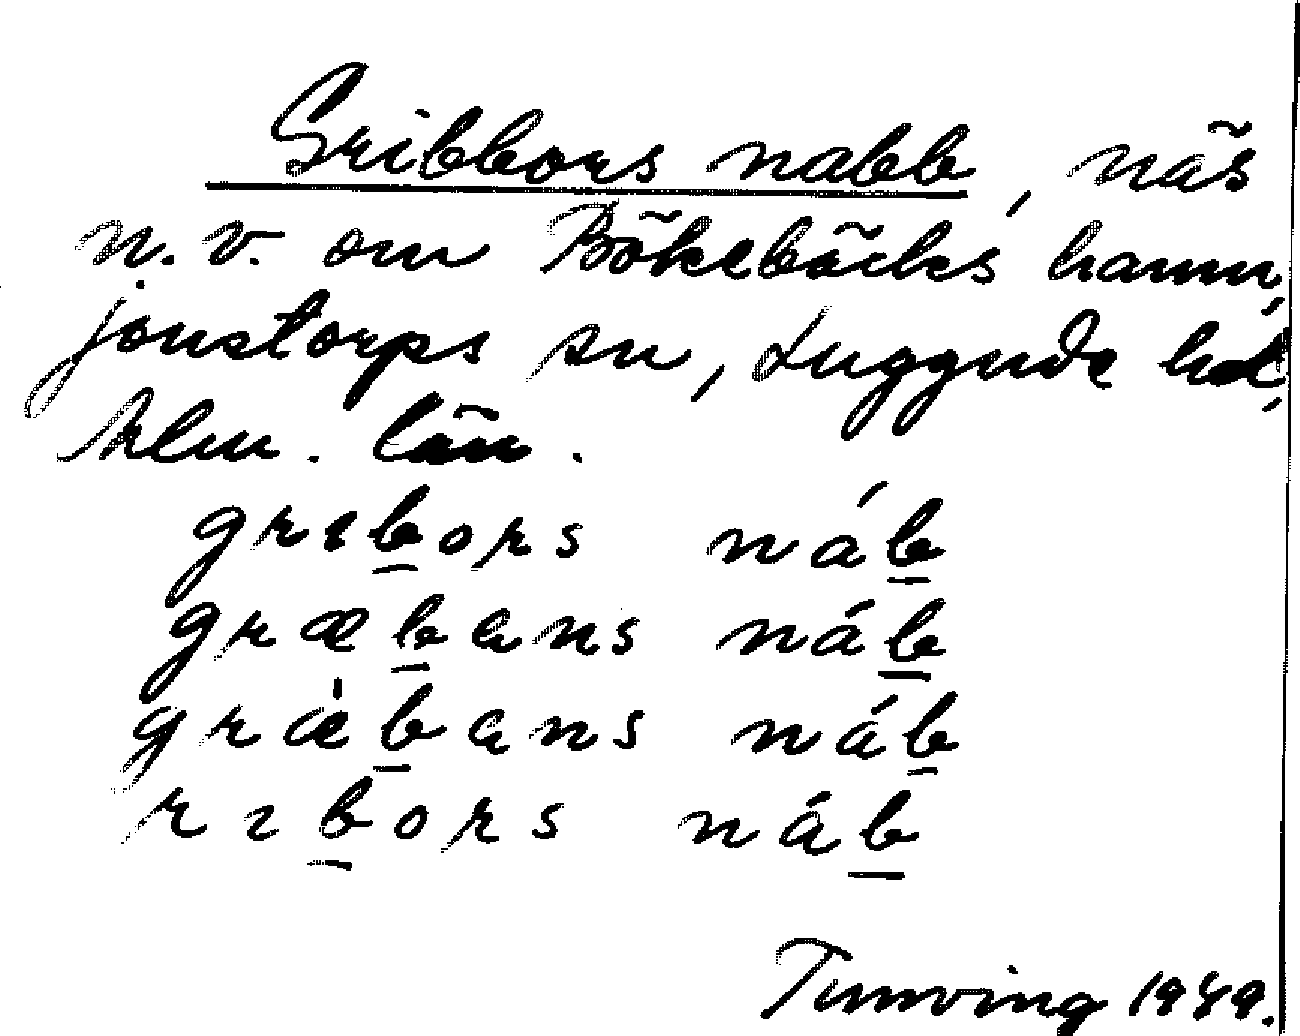 Gribbors nabb, näs
n.v. om Bökebäcks hamn,
Jonstorps sn, Luggude hd,
Klm. län.
grɪb̲ors náb̲
græb̲ans náb̲
græ̍b̲ans náb̲
rɪb̲ors náb̲
Tunving 1949.